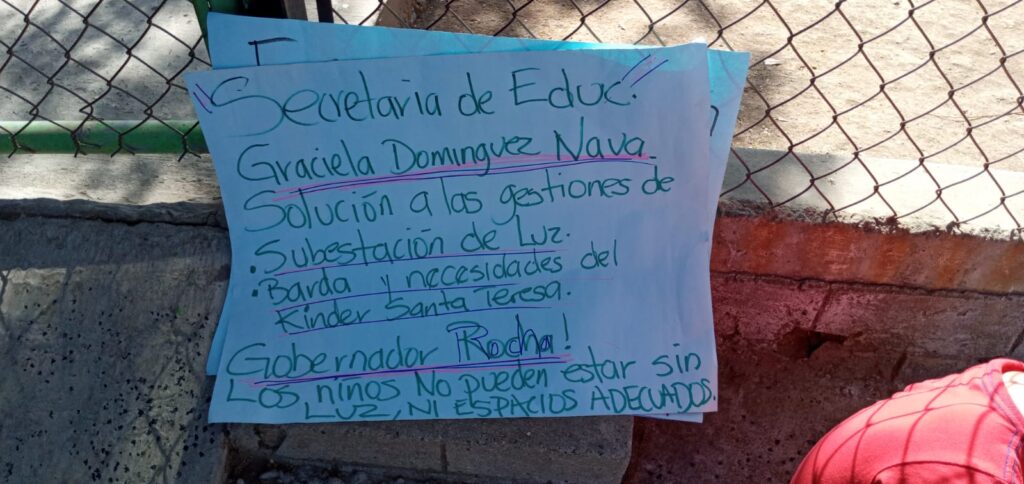 "Secretaria de Educ."
Graciela Dominguez Nava
Solución a las gestiones de
. Subestación de Luz.
. Barda y necesidades del
Kinder Santa Teresa.
Gobernador Rocha!
Los ninos No pueden estar sin
LUZ, NI ESPACIOS ADECUADOS.